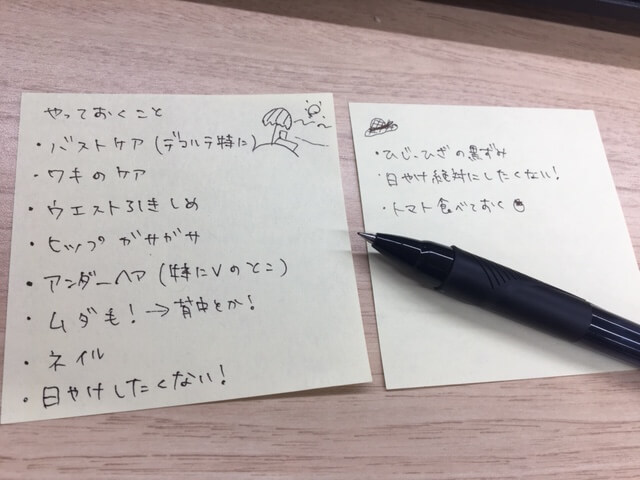 やっておくこと
・バストケア(デコルテ特に)
・ワキのケア
・ウエスト引きしめ
・ヒップ ガサガサ
・アンダーヘア(特にVのとこ)
・ムダ毛!→背中とか!
・ネイル
・日やけしたくない!
・ひじ、ひざの黒ずみ
・日やけ絶対にしたくない!
・トマト食べておく